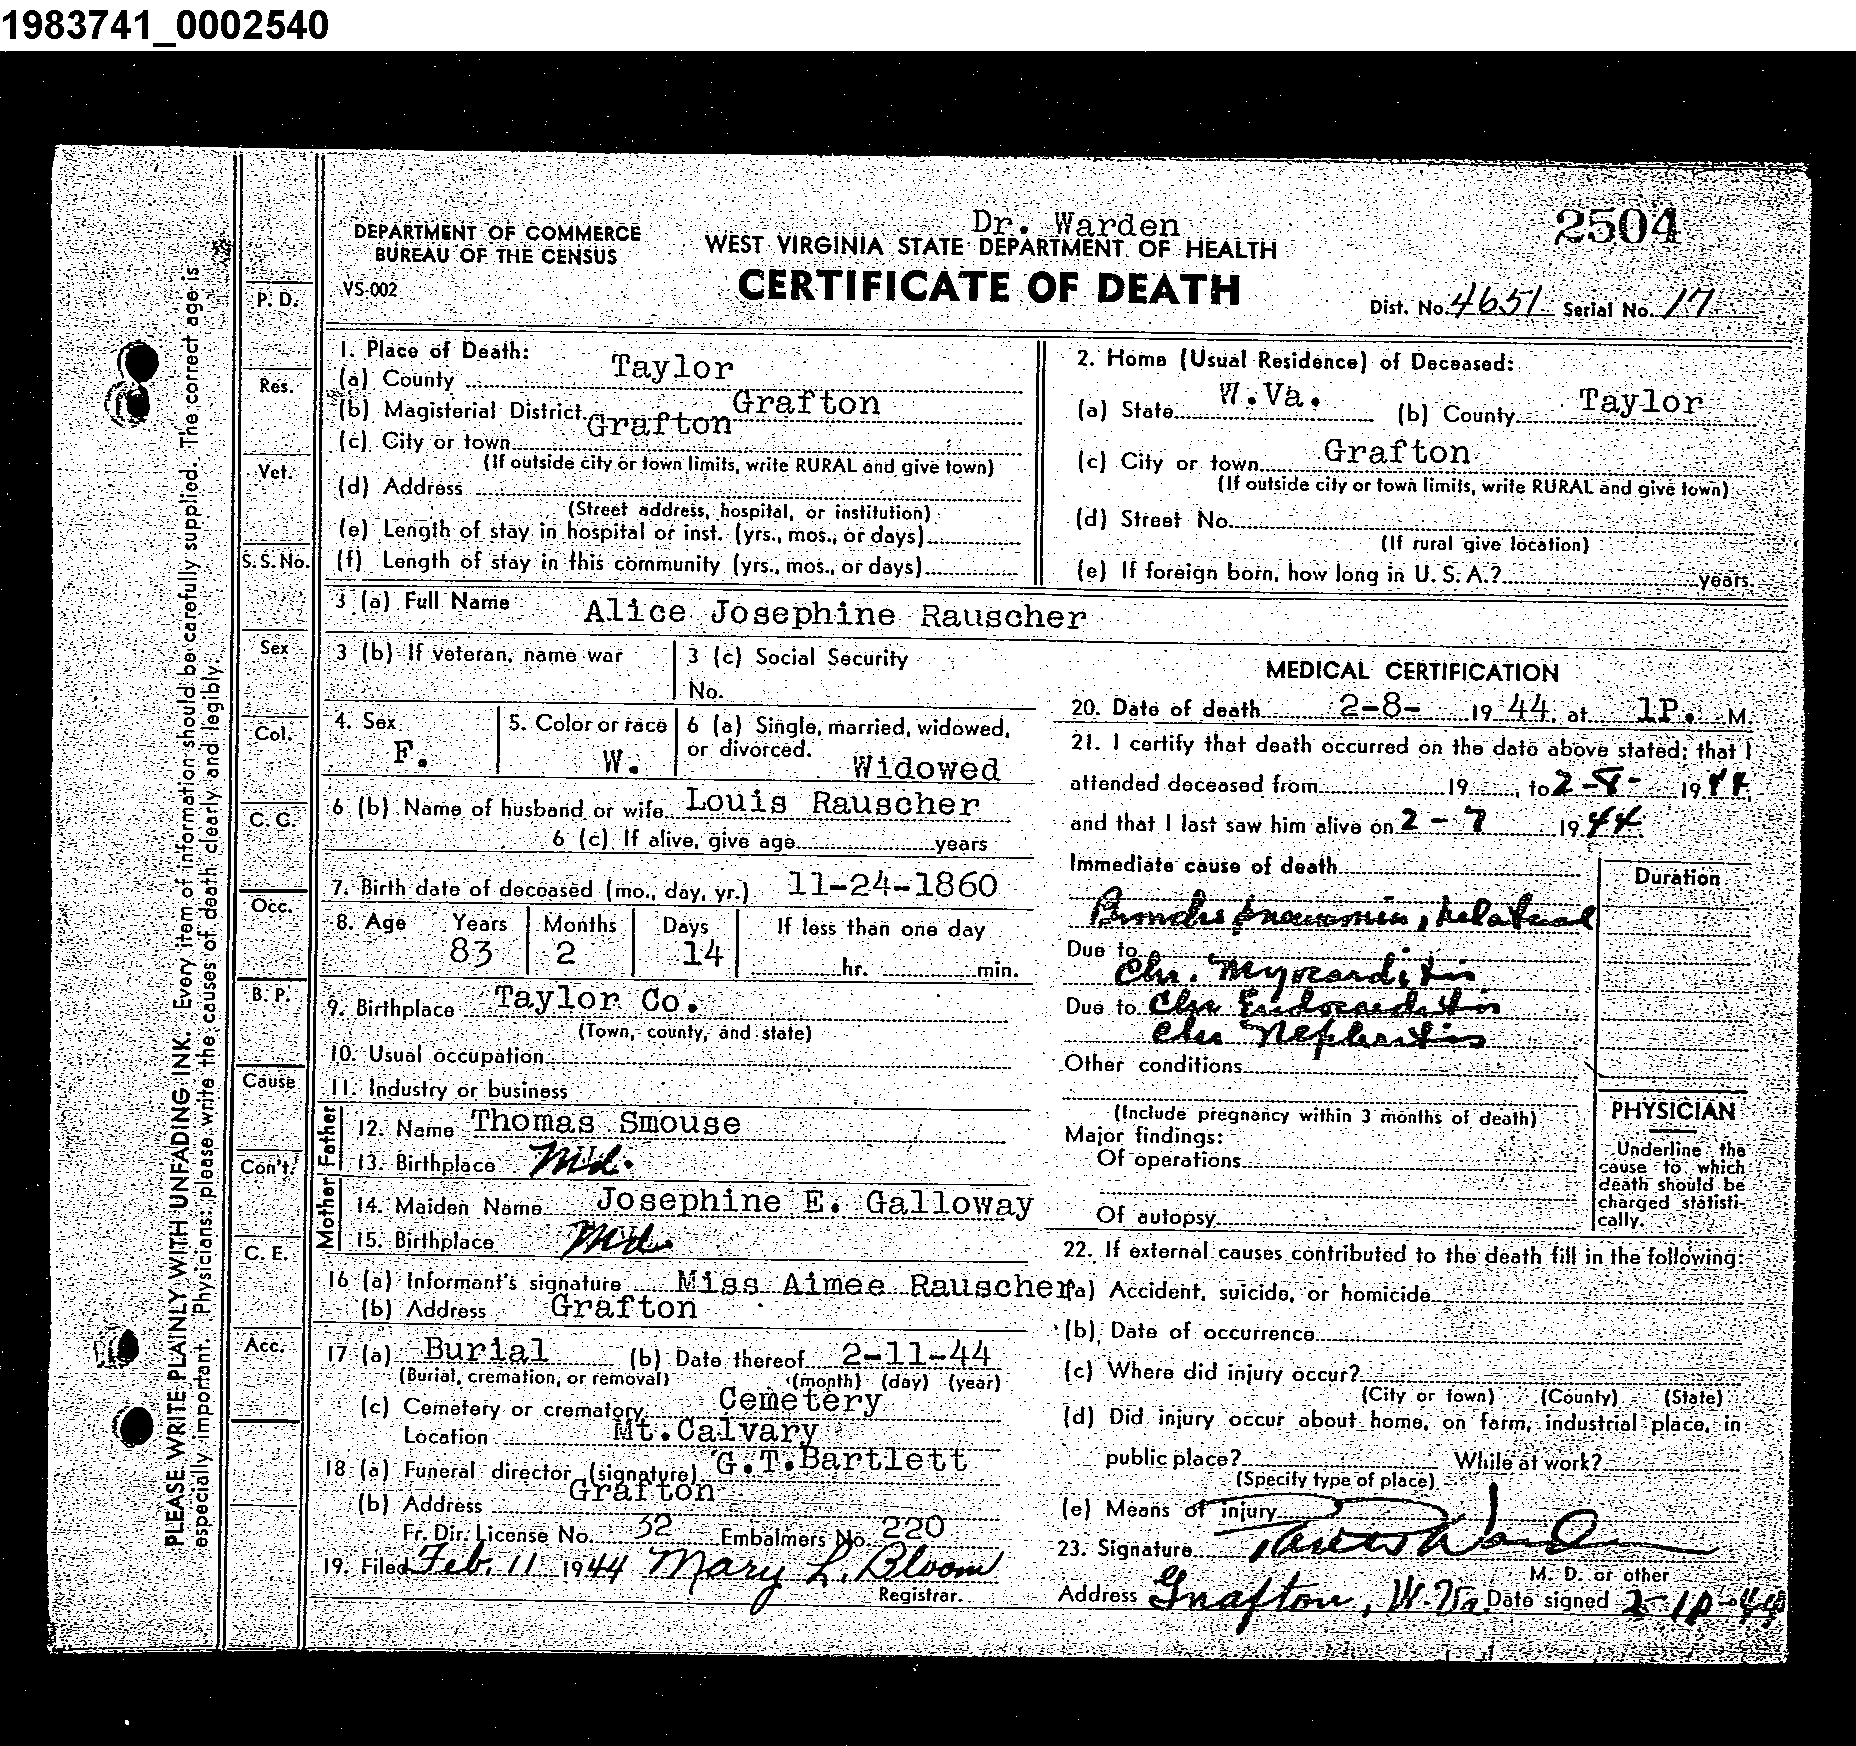 1983741_0002540
Dr. Warden
2504
DEPARTMENT OF COMMERCE
BUREAU OF THE CENSUS
WEST VIRGINIA STATE DEPARTMENT OF HEALTH
VS-002
CERTIFICATE OF DEATH
Dist. No. 4651 Serial No. 17
P. D.
Res.
Vet.
S. S. No.
Sex
Col.
C. C.
Occ.
B. P.
Cause
Con't.
C. E.
Acc.
PLEASE WRITE PLAINLY WITH UNFADING INK. Every item of information should be carefully supplied. The correct age is
especially important. Physicians: please write the causes of death clearly and legibly.
1. Place of Death:
(a) County Taylor
(b) Magisterial District Grafton
(c) City or town Grafton
(If outside city or town limits, write RURAL and give town)
(d) Address
(Street address, hospital, or institution)
(e) Length of stay in hospital or inst. (yrs., mos., or days)
(f) Length of stay in this community (yrs., mos., or days)
2. Home (Usual Residence) of Deceased:
(a) State W.Va. (b) County Taylor
(c) City or town Grafton
(If outside city or town limits, write RURAL and give town)
(d) Street No.
(If rural give location)
(e) If foreign born, how long in U. S. A.? years.
3 (a) Full Name Alice Josephine Rauscher
3 (b) If veteran, name war
3 (c) Social Security
No.
4. Sex F.
5. Color or race W.
6 (a) Single, married, widowed,
or divorced. Widowed
6 (b) Name of husband or wife Louis Rauscher
6 (c) If alive, give age years
7. Birth date of deceased (mo., day, yr.) 11-24-1860
8. Age Years Months Days If less than one day
83 2 14 hr. min.
9. Birthplace Taylor Co.
(Town, county, and state)
10. Usual occupation
11. Industry or business
Father
12. Name Thomas Smouse
13. Birthplace Md.
Mother
14. Maiden Name Josephine E. Galloway
15. Birthplace Md.
16 (a) Informant's signature Miss Aimee Rauscher
(b) Address Grafton
17 (a) Burial (b) Date thereof 2-11-44
(Burial, cremation, or removal) (month) (day) (year)
(c) Cemetery or crematory Cemetery
Location Mt.Calvary
18 (a) Funeral director (signature) G.T.Bartlett
(b) Address Grafton
Fr. Dir. License No. 32 Embalmers No. 220
19. Filed Feb. 11 1944 Mary L. Bloom
Registrar.
MEDICAL CERTIFICATION
20. Date of death 2-8- 1944, at 1P. M.
21. I certify that death occurred on the date above stated; that I
attended deceased from 19 , to 2-8- 1944,
and that I last saw him alive on 2-7 1944.
Immediate cause of death
Duration
Broncho pneumonia, bilateral
Due to Chr. Myocarditis
Due to Chr Endocarditis
Chr Nephritis
Other conditions
(Include pregnancy within 3 months of death)
Major findings:
Of operations
Of autopsy
PHYSICIAN
Underline the
cause to which
death should be
charged statisti-
cally.
22. If external causes contributed to the death fill in the following:
(a) Accident, suicide, or homicide
(b) Date of occurrence
(c) Where did injury occur?
(City or town) (County) (State)
(d) Did injury occur about home, on farm, industrial place, in
public place? While at work?
(Specify type of place)
(e) Means of injury
23. Signature Warden
M. D. or other
Address Grafton, W.Va. Date signed 2-10-44